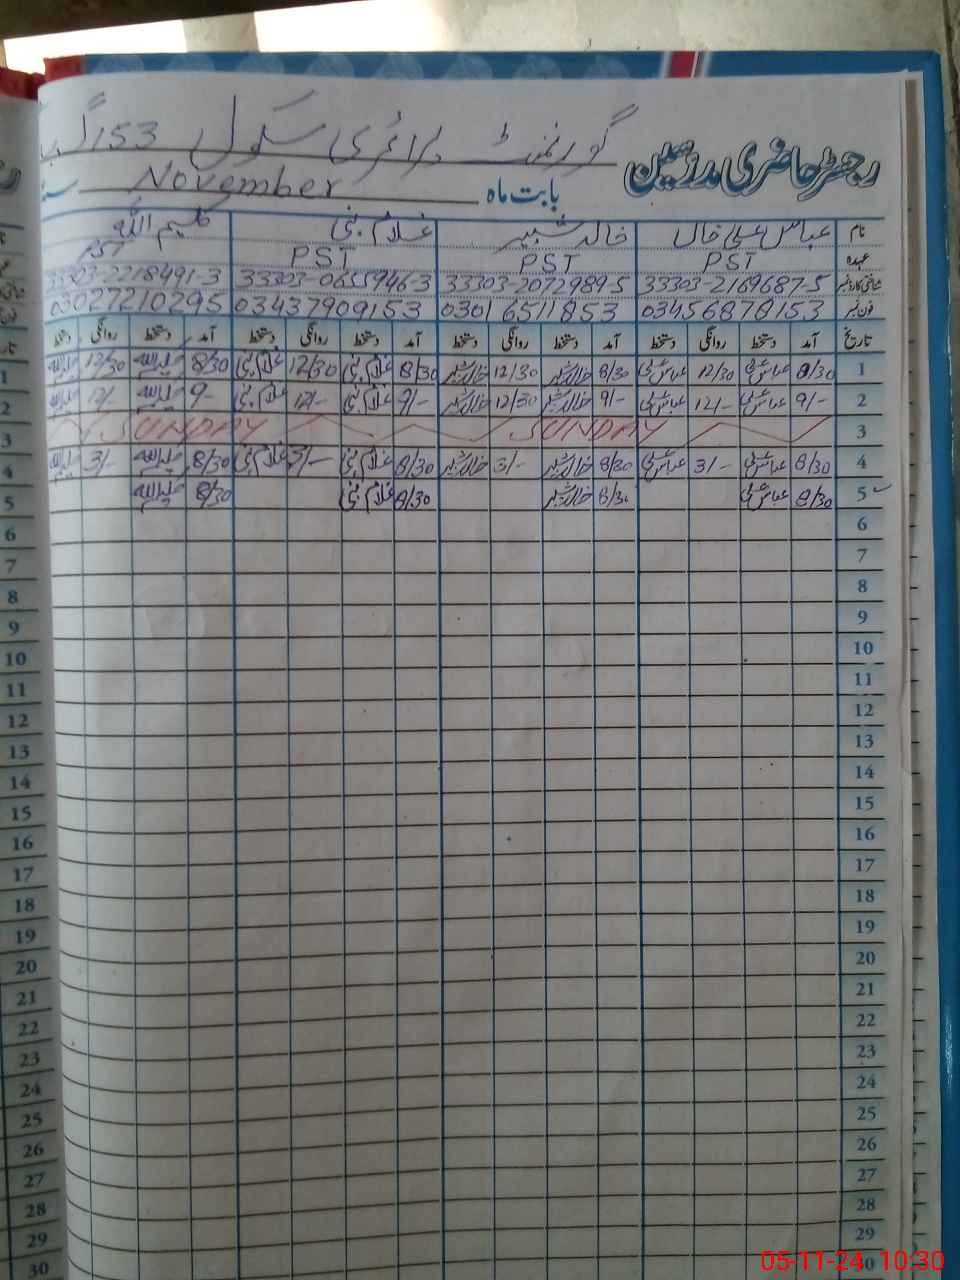 رجسٹر حاضری مدرسین گورنمنٹ پرائمری سکول 153
بابت ماہ November
نام عباس علی خان خالد شبیر غلام نبی کلیم اللہ
عہدہ PST PST PST PST
شناختی کارڈ نمبر 33303-2169687-5 33303-2072989-5 33303-0655946-3 33303-2218491-3
فون نمبر 03456878153 03016511853 03437909153 03027210295
تاریخ آمد دستخط روانگی دستخط آمد دستخط روانگی دستخط آمد دستخط روانگی دستخط آمد دستخط روانگی دستخط
1 8/30 عباس علی 12/30 عباس علی 8/30 خالد شبیر 12/30 خالد شبیر 8/30 غلام نبی 12/30 غلام نبی 8/30 کلیم اللہ 12/30 کلیم اللہ
2 9/- عباس علی 12/- عباس علی 9/- خالد شبیر 12/30 خالد شبیر 9/- غلام نبی 12/- غلام نبی 9- کلیم اللہ 12/- کلیم اللہ
3 SUNDAY SUNDAY
4 8/30 عباس علی 3/- عباس علی 8/30 خالد شبیر 3/- خالد شبیر 8/30 غلام نبی 3/- غلام نبی 8/30 کلیم اللہ 3/- کلیم اللہ
5 8/30 عباس علی 8/30 خالد شبیر 8/30 غلام نبی 8/30 کلیم اللہ
6
7
8
9
10
11
12
13
14
15
16
17
18
19
20
21
22
23
24
25
26
27
28
29
30
05-11-24 10:30